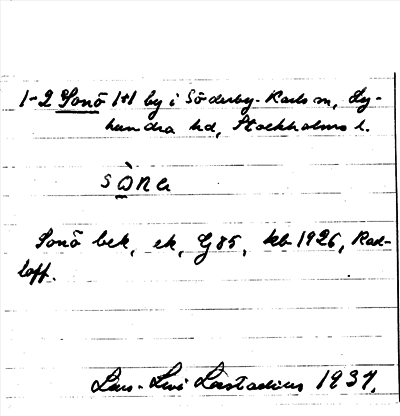 1-2 Sonö 1+1 by i Söderby-Karls sn, Ly-
hundra hd, Stockholms l.
sònα
Sonö bek, ek, G85, kb 1926, Rad-
loff.
Lars-Levi Læstadius 1937.